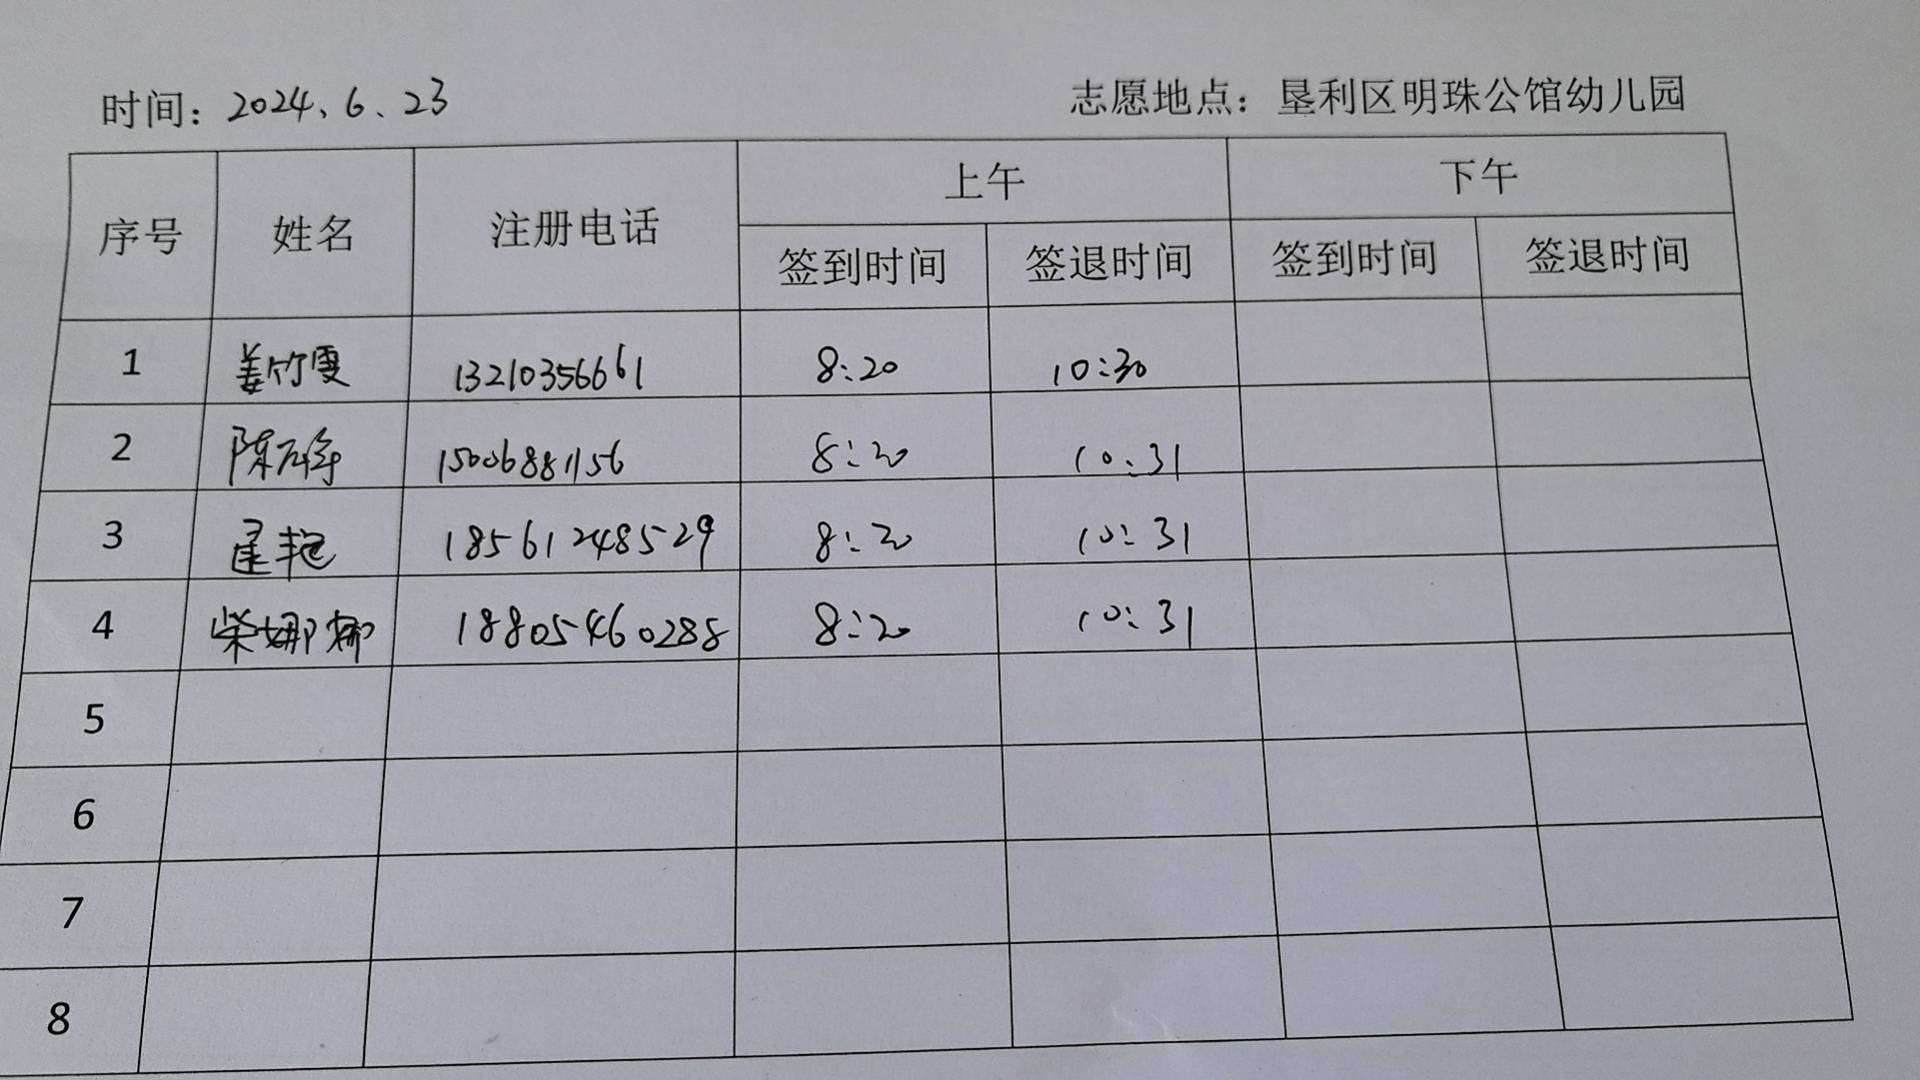 时间：2024、6、23 志愿地点：垦利区明珠公馆幼儿园
序号 姓名 注册电话 上午 下午
签到时间 签退时间 签到时间 签退时间
1 姜竹雯 13210356661 8:20 10:30
2 陈 15006881156 8:20 10:31
3 18561248529 8:20 10:31
4 柴娜娜 18805460288 8:20 10:31
5
6
7
8